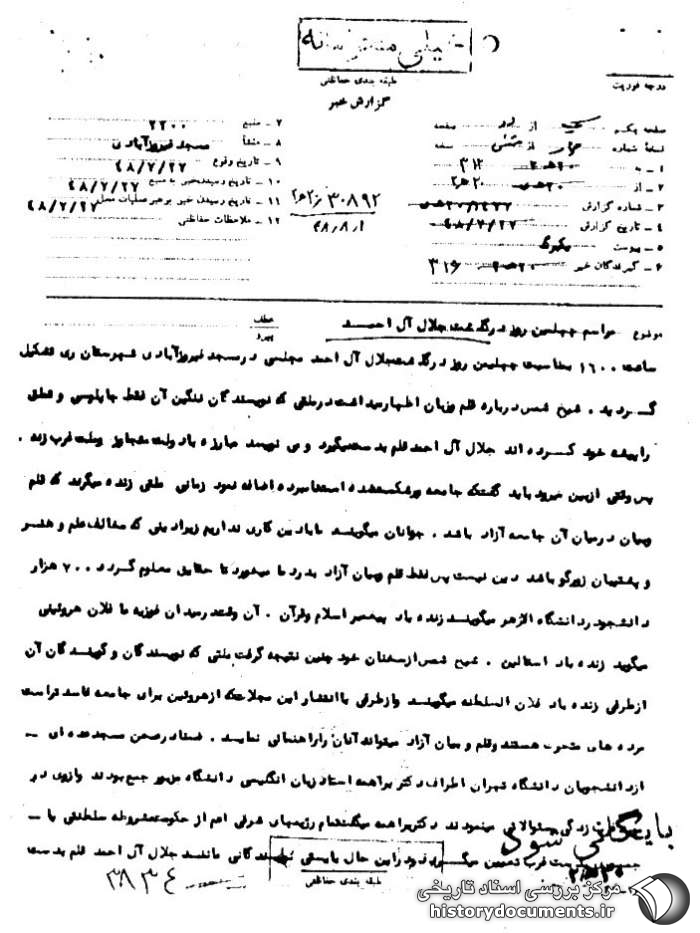 خیلی محرمانه
طبقه بندی حفاظتی
گزارش خبر
درجه فوریت
صفحه یکم از دو صفحه
نسخه شماره از نسخه
۱ - به ۳۱۲
۲ - از ۲۰ ه‍ ۲
۳ - شماره گزارش
۴ - تاریخ گزارش ۴۸/۷/۲۷
۵ - پیوست
۶ - گیرندگان خبر ۳۱۶
۷ - منبع ۲۲۰۰
۸ - منشأ مسجد فیروزآبادی
۹ - تاریخ وقوع ۴۸/۷/۲۷
۱۰ - تاریخ رسیدن خبر به منبع ۴۸/۷/۲۷
۱۱ - تاریخ رسیدن خبر برهبر عملیات محل ۴۸/۷/۲۷
۱۲ - ملاحظات حفاظتی
۳۰۸۹۲
۴۸/۸/۱
موضوع مراسم چهلمین روز درگذشت جلال آل احمد
عطف
پیرو
ساعت ۱۶۰۰ بمناسبت چهلمین روز درگذشت جلال آل احمد مجلسی در مسجد فیروزآبادی شهرستان ری تشکیل
گردید . شیخ شمس درباره قلم و بیان اظهار میداشت در ملتی که نویسندگان ننگین آن فقط چاپلوسی و تملق
را پیشه خود کرده اند جلال آل احمد قلم بدست میگیرد و می نویسد مبارزه با دولت متجاوز و ملت غرب زده .
پس وقتی از بین میرود باید گفت که جامعه ورشکست شده است نامبرده اضافه نمود زمانی ملتی زنده میگردد که قلم
وبیان در میان آن جامعه آزاد باشد . جوانان میگویند ما با دین کاری نداریم زیرا دینی که مخالف علم و هنر
و پشتیبان زورگو باشد دین نیست پس فقط قلم وبیان آزاد بدرد ما میخورد تا حقایق معلوم گردد ۷۰۰ هزار
دانشجو در دانشگاه الازهر میگویند زنده باد پیغمبر اسلام وقرآن . آن وقت در میدان فوزیه ما فلان هروئینی
میگوید زنده باد استالین . شیخ شمس از سخنان خود چنین نتیجه گرفت ملتی که نویسندگان و گویندگان آن
از طرفی زنده باد فلان السلطنه میگویند و از طرفی با انتشار این مجلات که از هروئین برای جامعه فاسد تر است
مرده های متحرک هستند وقلم و بیان آزاد میتواند آنان را راهنمائی نماید . ضمناً در صحن مسجد عده ای -
از دانشجویان دانشگاه تهران اطراف دکتر براهنی استاد زبان انگلیسی دانشگاه مزبور جمع بودند و از وی در
زندگی سئوالاتی مینمودند دکتر براهنی میگفت تمام رژیمهای شرقی اعم از حکومت مشروطه سلطنتی یا -
غرب تعیین میگردد در این حال بایستی نویسندگانی مانند جلال آل احمد قلم بدست
بایگانی شود
طبقه بندی حفاظتی
۳۸۳۴
مرکز بررسی اسناد تاریخی
historydocuments.ir